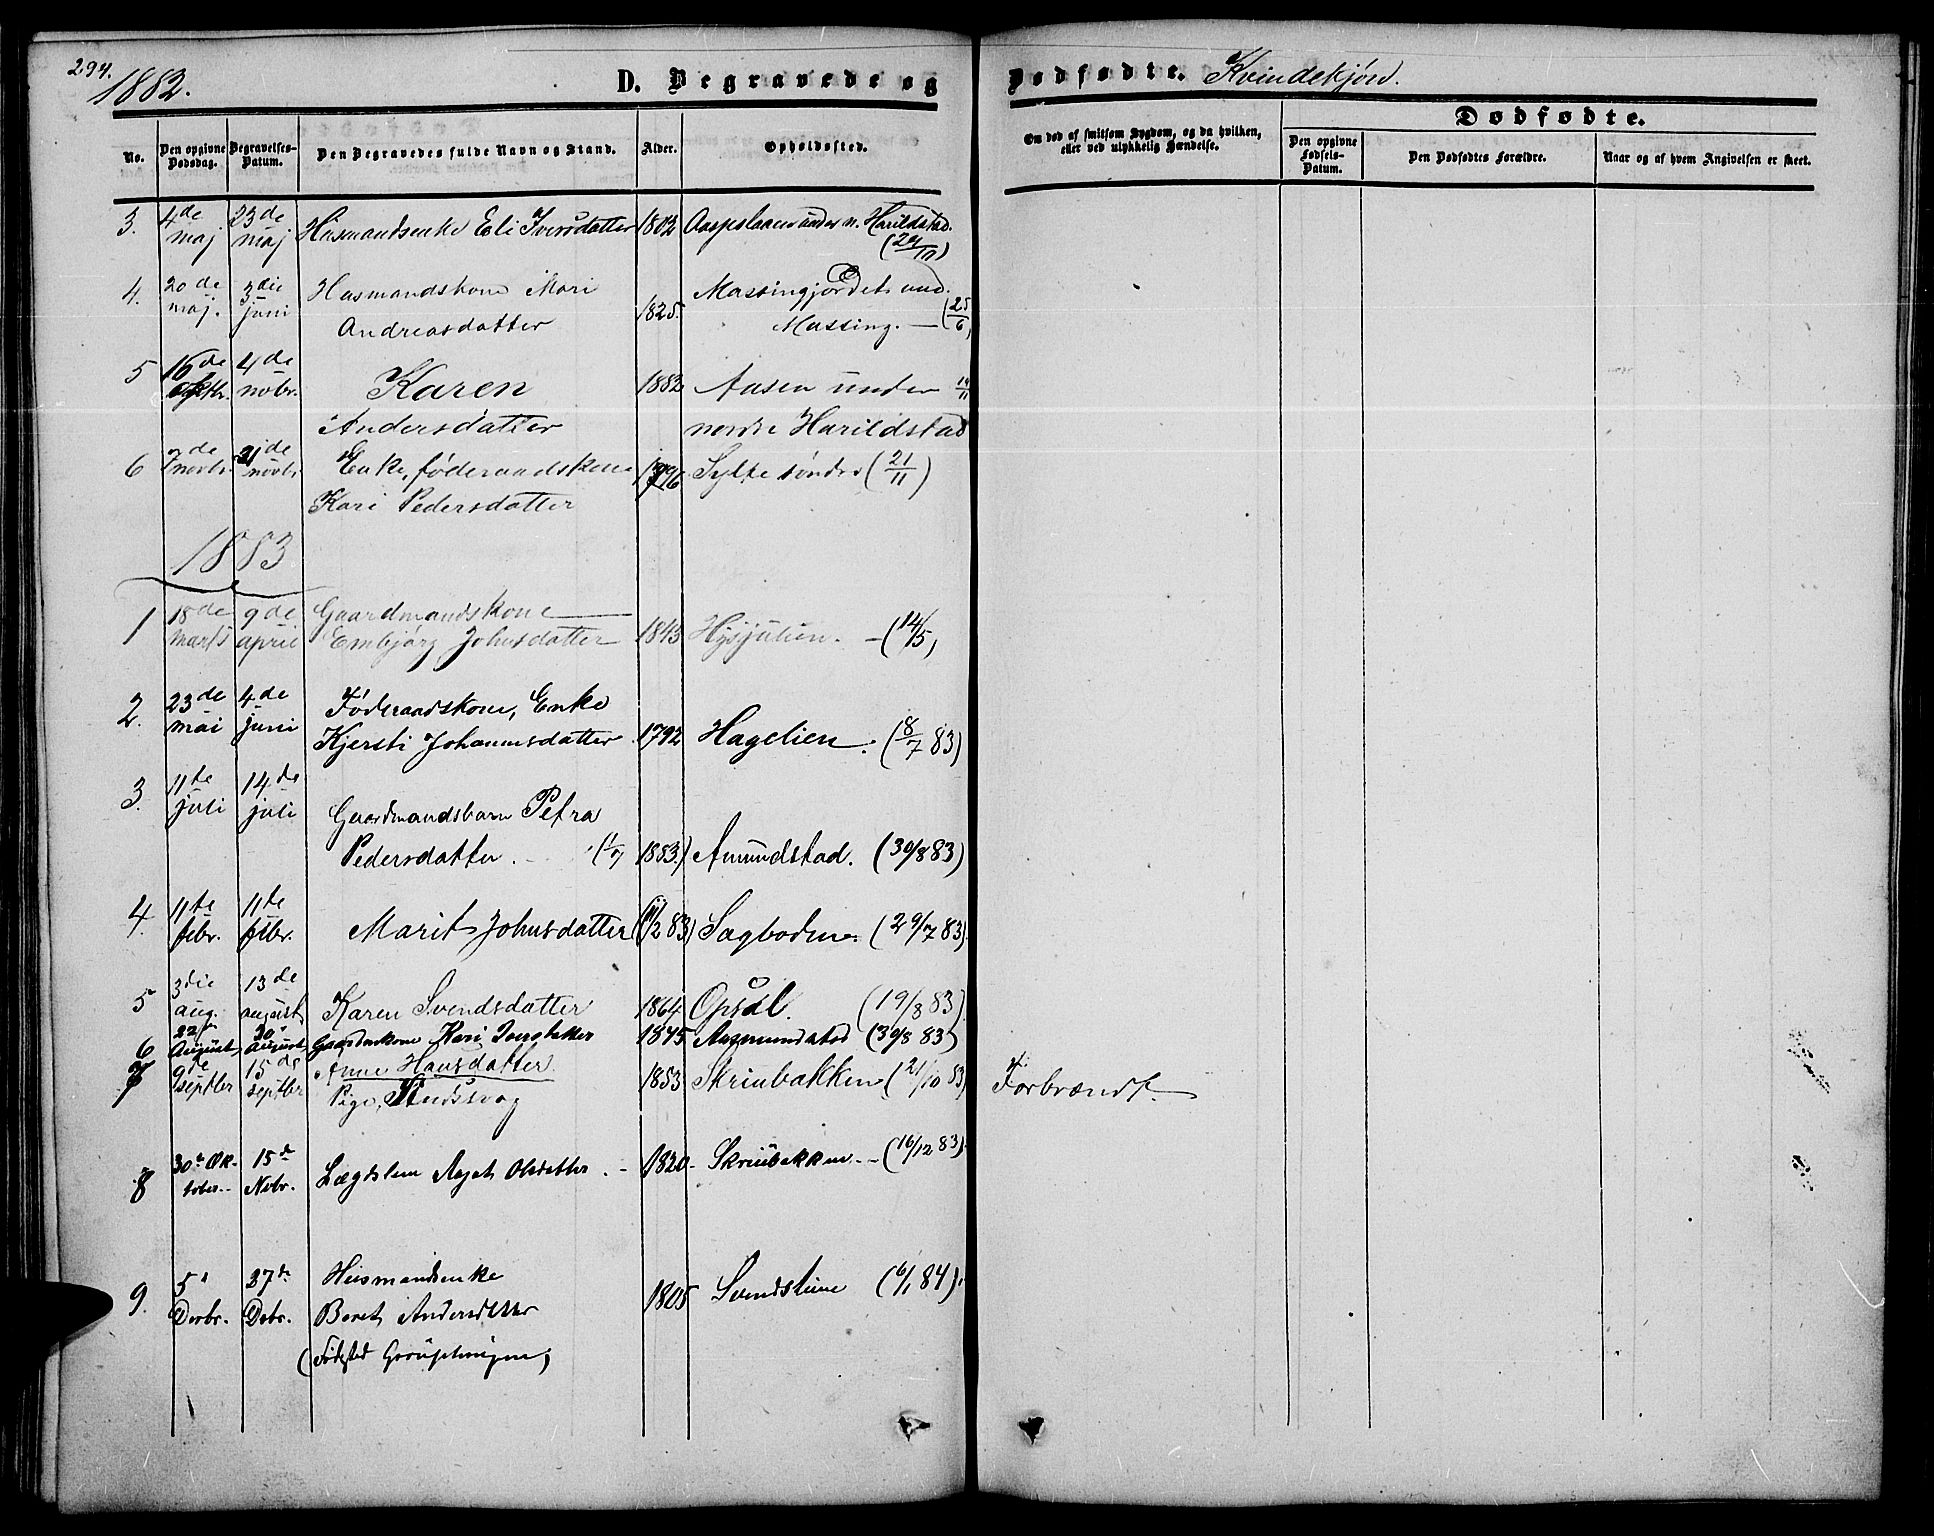 294.
1882.
D. Begravede og Dødfødte. Kvindekjøn.
No.
Den opgivne Dødsdag.
Begravelses-Datum.
Den Begravedes fulde Navn og Stand.
Alder.
Opholdssted.
Om død af smitsom Sygdom, og da hvilken, eller ved ulykkelig Hændelse.
Dødfødte.
Den opgivne Fødsels-Datum.
Den Dødfødtes Forældre.
Naar og af hvem Angivelsen er skeet.
3. 4de maj 23de maj Husmandsenke Eli Iversdatter 1802 under n. Harildstad.
4. 20de maj. 3die juni Husmandskone Mari
Andreasdatter 1825. Massingjordet und.
Massing. — (25/6)
5 16de oktbr. 4de nobr. Karen 1882 Aasen under 19/11
Andersdatter nordre Harildstad
6 7de novbr 21de novbr Enke, føderaadskone 1796 Sylte søndre (21/11)
Kari Pedersdatter
1883
1 18de marts 9de april Gaardmandskone
Embjørg Johnsdatter 1843 Hysjulien. - (14/5)
2. 23de mai 4de juni Føderaadskone, Enke
Kjersti Johannesdatter 1792 Hagelien. (8/7 83)
3. 11te juli 14de juli Gaardmandsbarn Petra
Pedersdatter. (1/7 1883.) Amundstad. (30/8 83)
4. 11te febr. 11te febr. Marit Johnsdatter (11/2 83) Sagboden. (29/7 83)
5 3die aug. 13de august Karen Svendsdatter 1864 Opsal. (19/8 83)
6 22de August 30. August Gaardmkone Kari Iversdatter 1845 Aasmundstad (30/8 83)
7 9de septbr 15de septbr Anne Hansdatter 1853 Skriubakken (21/10 83) Forbrændt.
Pige, Sindssvag
8 30te Oktober 15de Nvbr. Lægdslem Agat Olsdatter. - 1820 - Skriubakken - (16/12 83)
9. 5te Decbr. 27de Dcbr. Husmandsenke
Beret Andersdatter 1805 Svendsliene (6/1 84).
(Fødested